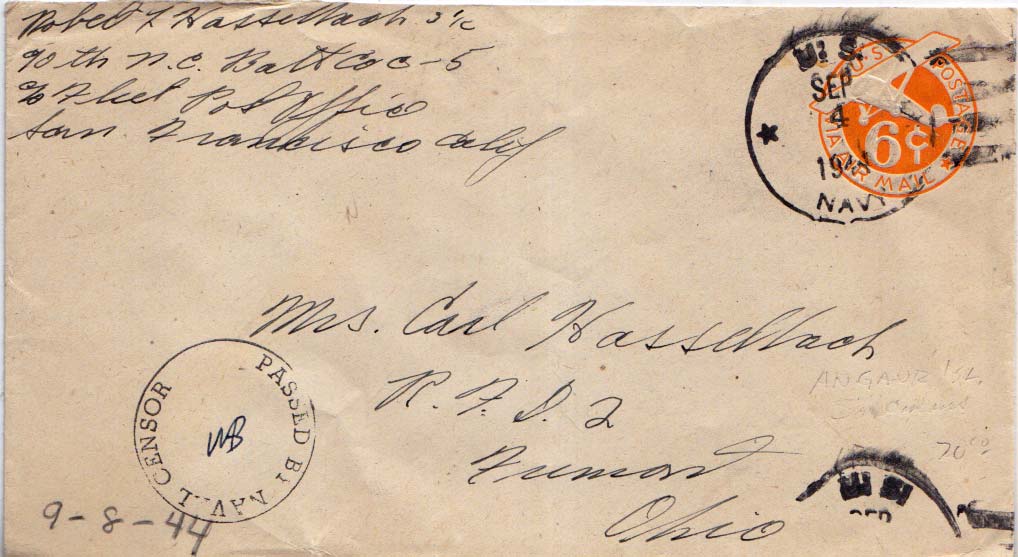 Robert F Hasselbach S 1/c
90th N.C. Batt Co C-5
c/o Fleet Post Office
San Francisco Calif
U.S.
SEP
4
NAVY
U.S. POSTAGE
6¢
VIA AIR MAIL
Mrs. Carl Hasselbach
R.F.D. 2
Fremont
Ohio
ANGAUR ISL.
20 00
PASSED BY NAVAL CENSOR
WB
9-8-44
U S
SEP